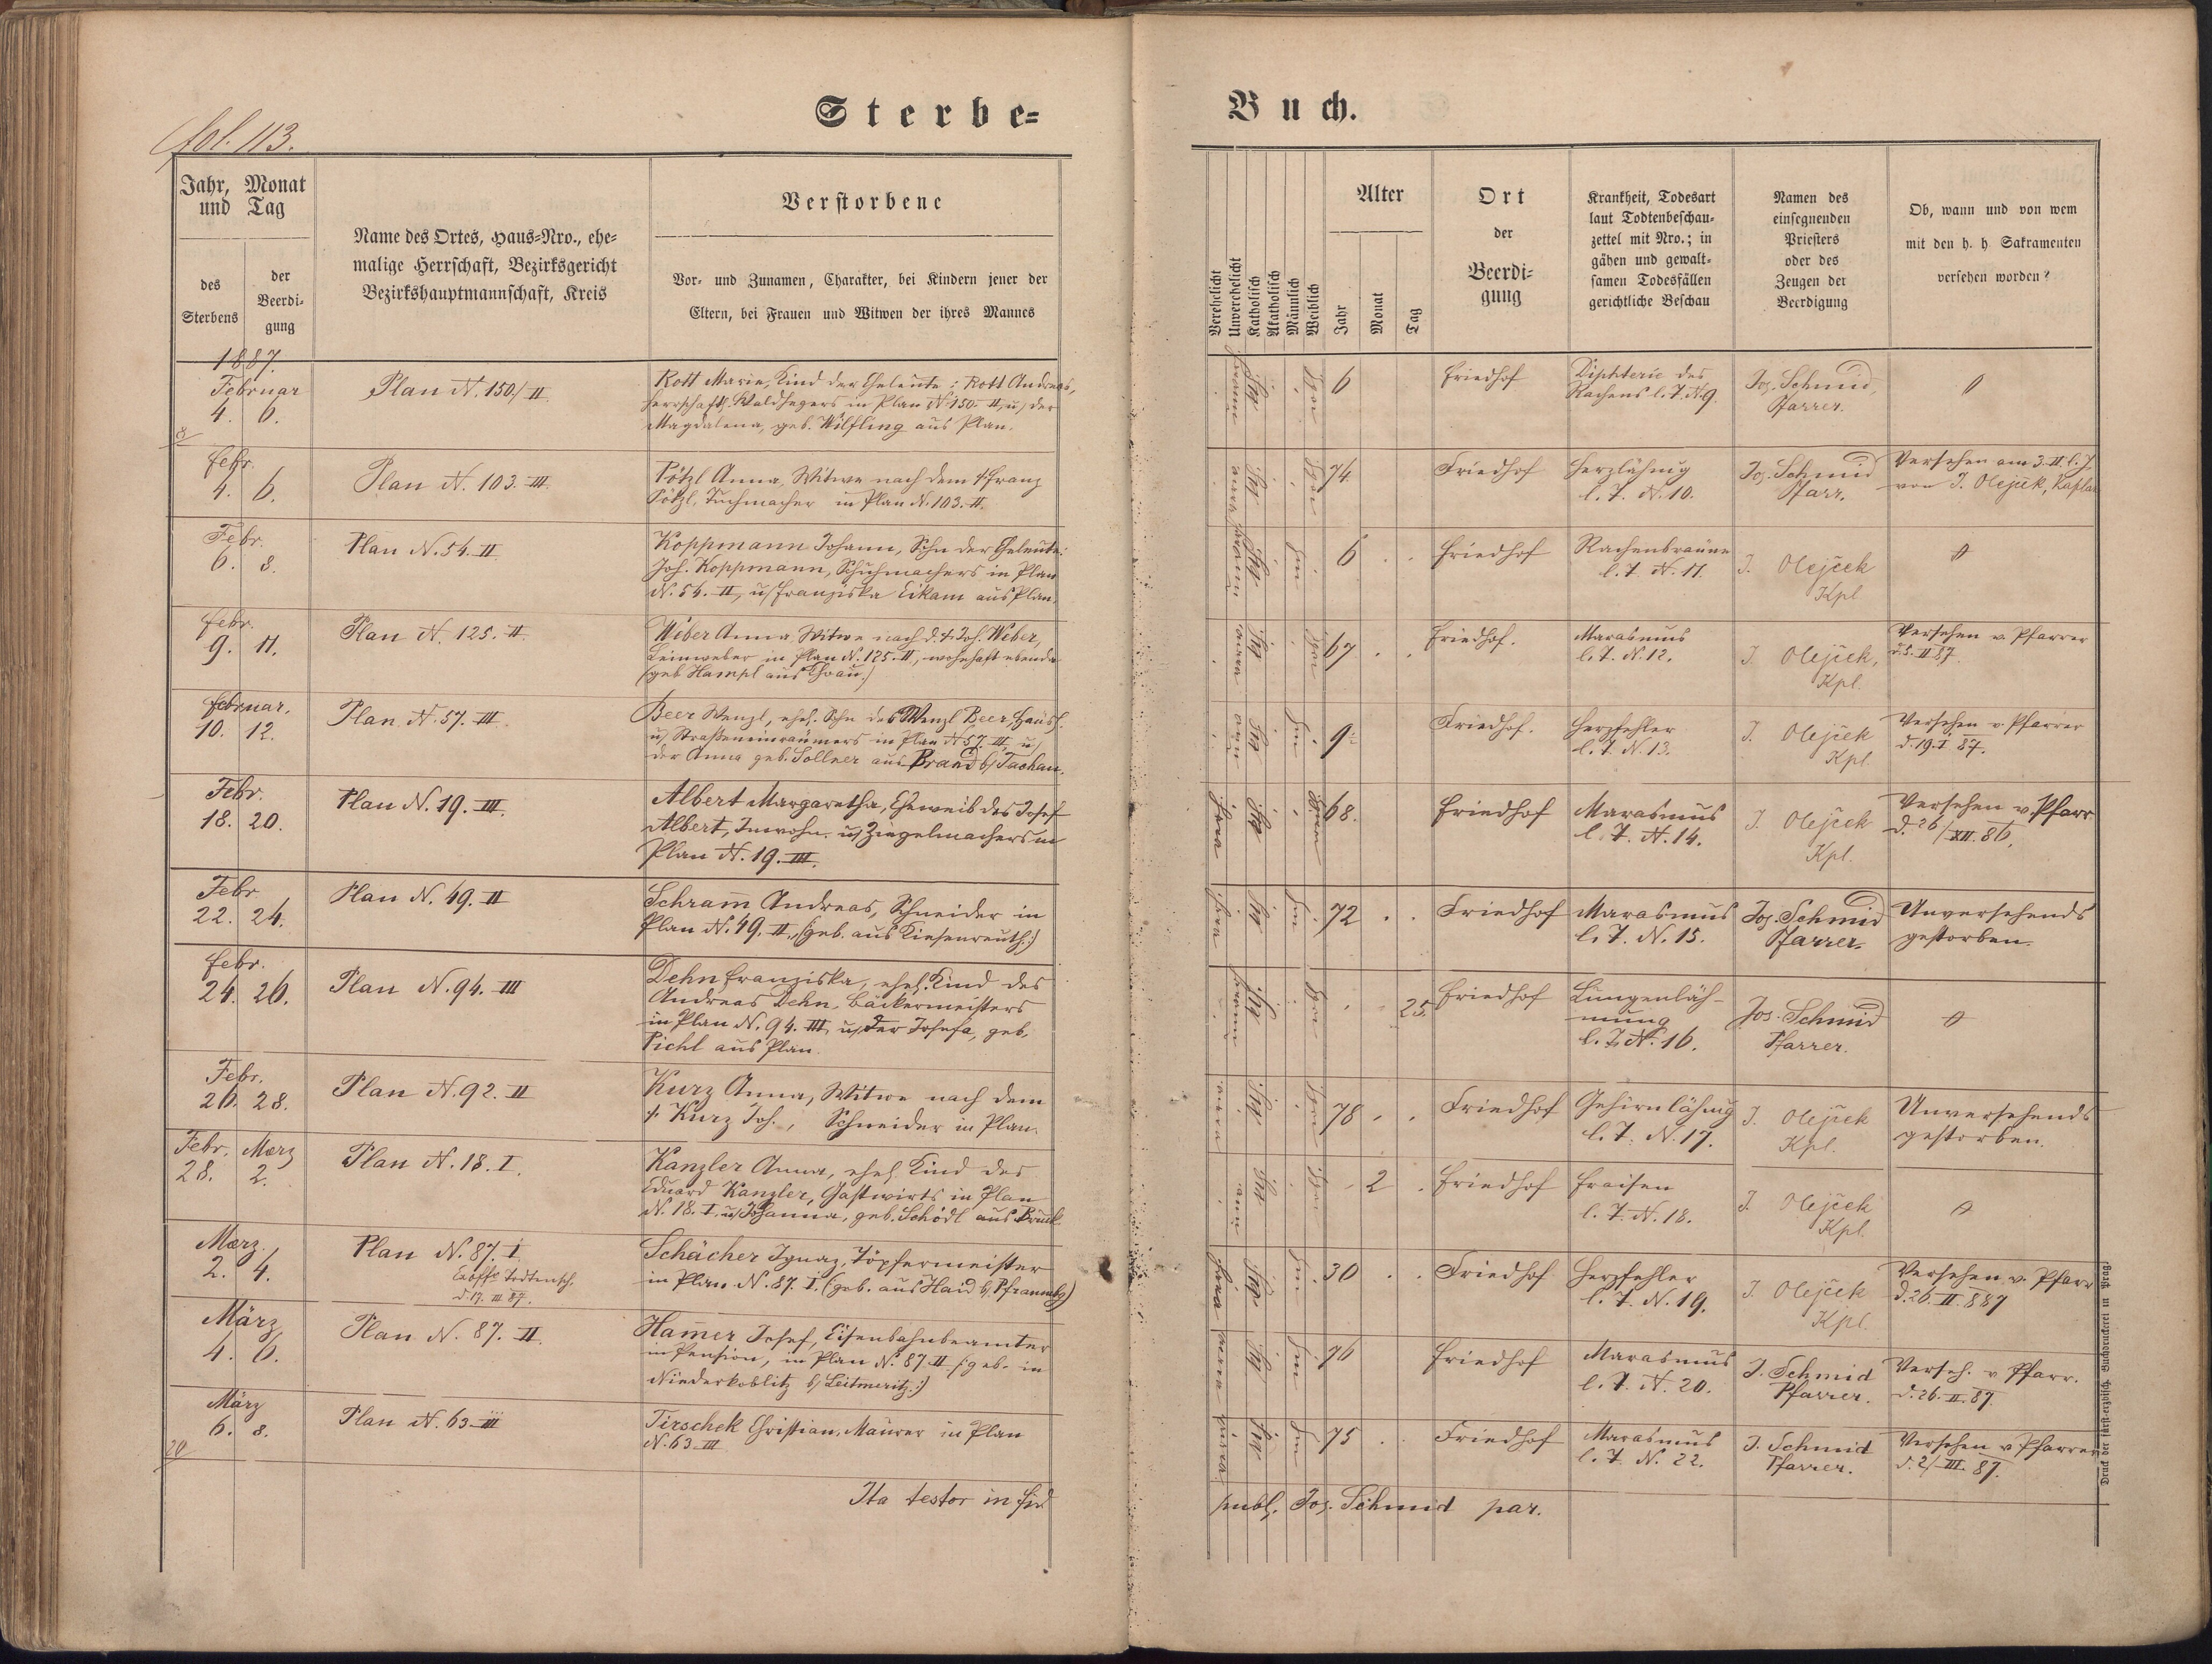 fol. 113.
Sterbe=
Buch.
Jahr, Monat
und Tag
des
Sterbens
der
Beerdi=
gung
Name des Ortes, Haus=Nro., ehe=
malige Herrschaft, Bezirksgericht
Bezirkshauptmannschaft, Kreis
Verstorbene
Vor= und Zunamen, Charakter, bei Kindern jener der
Eltern, bei Frauen und Witwen der ihres Mannes
Verehelicht
Unverehelicht
Katholisch
Akatholisch
Männlich
Weiblich
Alter
Jahr
Monat
Tag
Ort
der
Beerdi=
gung
Krankheit, Todesart
laut Todtenbeschau=
zettel mit Nro.; in
gähen und gewalt=
samen Todesfällen
gerichtliche Beschau
Namen des
einsegnenden
Priesters
oder des
Zeugen der
Beerdigung
Ob, wann und von wem
mit den h. h. Sakramenten
versehen worden?
1887.
Februar
4. 6.
8
Plan N. 150/II
Rott Marie, Kind der Eheleute: Rott Andreas,
herrschaftl. Waldhegers in Plan N. 150 II, u/ der
Magdalena, geb. Wilfling aus Plan.
6
Friedhof
Diphterie des
Rachens l. T. N. 9.
Jos. Schmid,
Pfarrer.
Febr.
4. 6.
Plan N. 103. III.
Pötzl Anna, Witwe nach dem † Franz
Pötzl, Tuchmacher in Plan N. 103. II.
74
Friedhof
Herzlähmg
l. T. N. 10.
Jos. Schmid
Pfarr.
Versehen am 3. II. l. J.
von J. Olejček, Kaplan
Febr.
6. 8.
Plan N. 54. II
Koppmann Johann, Sohn der Eheleute:
Joh. Koppmann, Schuhmachers in Plan
N. 54. II, u/ Franziska Eikam aus Plan.
6 . .
Friedhof
Rachenbräune
l. T. N. 11.
J. Olejček
Kpl
Febr.
9. 11.
Plan N. 125. II
Weber Anna, Witwe nach d. † Joh. Weber,
Leinweber in Plan N. 125. II, wohnhaft ebenda
(geb Hampl aus .)
67 . .
Friedhof.
Marasmus
l. T. N. 12.
J. Olejček,
Kpl.
Versehen v. Pfarrer
d. 5. II 87
Februar.
10. 12.
Plan N. 57. III.
Beer Wenzl, ehel. Sohn des Wenzl Beer, Häusl.
u/ Straßeneinräumers in Plan N. 57. III, u/
der Anna geb. Sollner aus Brand b/ Tachau.
9
Friedhof.
Herzfehler
l. T. N. 13.
J. Olejček
Kpl
Versehen v. Pfarrer
d. 19. I. 87.
Febr.
18. 20.
Plan N. 19. III.
Albert Margaretha, Eheweib des Josef
Albert, Inwohn. u/ Ziegelmachers in
Plan N. 19. III.
68.
Friedhof
Marasmus
l. T. N. 14.
J. Olejček
Kpl.
Versehen v. Pfarr
d. 26/XII. 86.
Febr
22. 24.
Plan N. 49. II
Schram̄ Andreas, Schneider in
Plan N. 49. II, (geb. aus Kiesenreuth.)
72 . .
Friedhof
Marasmus
l. T. N. 15.
Jos. Schmid
Pfarrer.
Unversehends
gestorben.
Febr.
24. 26.
Plan N. 94. III
Dehn Franziska, ehel. Kind des
Andreas Dehn, Bäckermeisters
in Plan N. 94. III, u/ der Josefa, geb.
Pichl aus Plan.
. 25.
Friedhof
Lungenläh-
mung
l. T. N. 16.
Jos. Schmid
Pfarrer.
Febr.
26. 28.
Plan N. 92. II
Kurz Anna, Witwe nach dem
† Kurz Joh., Schneider in Plan.
78 . .
Friedhof
Gehirnlähmg
l. T. N. 17.
J. Olejček
Kpl.
Unversehends
gestorben.
Febr. Maerz
28. 2.
Plan N. 18. I.
Kanzler Anna, ehel. Kind des
Eduard Kanzler, Gastwirts in Plan
N. 18. I, u/ Johanna, geb. Schödl aus Bruck.
. 2 .
Friedhof
Fraisen
l. T. N. 18.
J. Olejček
Kpl.
Maerz.
2. 4.
Plan N. 87. I
Todtensch.
d. 17. III. 87.
Schächer Ignaz, Töpfermeister
in Plan N. 87. I. (geb. aus Haid b/ Pfraumbg)
30 . .
Friedhof
Herzfehler
l. T. N. 19.
J. Olejček
Kpl.
Versehen v. Pfarr
d. 26. II. 887
März
4. 6.
Plan N. 87. II
Ham̄er Josef, Eisenbahnbeamter
in Pension, in Plan N. 87. II (: geb. in
Niederkoblitz b/ Leitmeritz.:)
76
Friedhof
Marasmus
l. T. N. 20.
J. Schmid
Pfarrer.
Verseh. v. Pfarr.
d. 26. II. 87.
März
6. 8.
20
Plan N. 63 III
Tirschek Christian, Maurer in Plan
N. 63 III
75 .
Friedhof
Marasmus
l. T. N. 22.
J. Schmid
Pfarrer.
Versehen v. Pfarrer
d. 2/III. 87.
Ita testor in fid
publ. Jos. Schmid par.
Druck der fürst=erzbisch. Buchdruckerei in Prag.